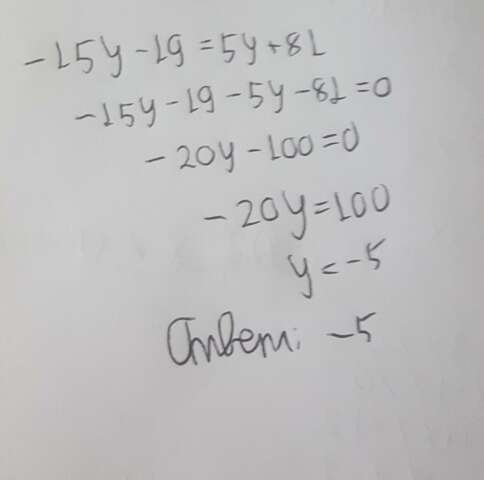 -15y-19=5y+81
-15y-19-5y-81=0
-20y-100=0
-20y=100
y=-5
Ответ: -5